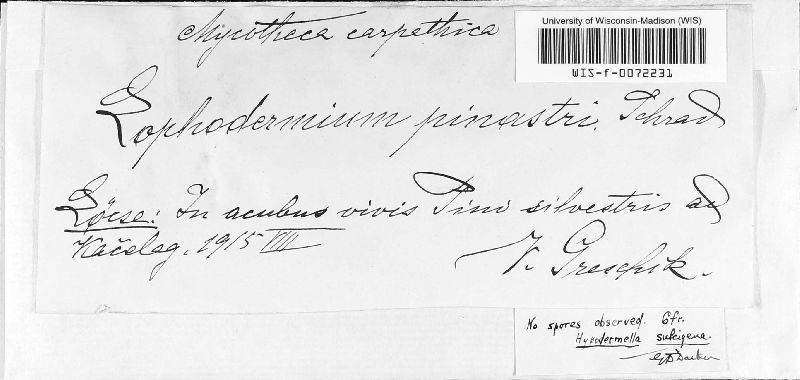 Mycotheca carpathica
University of Wisconsin-Madison (WIS)
WIS-f-0072231
Lophodermium pinastri. Schrad
Lőcse: In acubus vivis Pini silvestris ad
Kačelag, 1915 VIII
V. Greschik.
No spores observed. Cfr.
Hypodermella sulcigena.
GD Darker